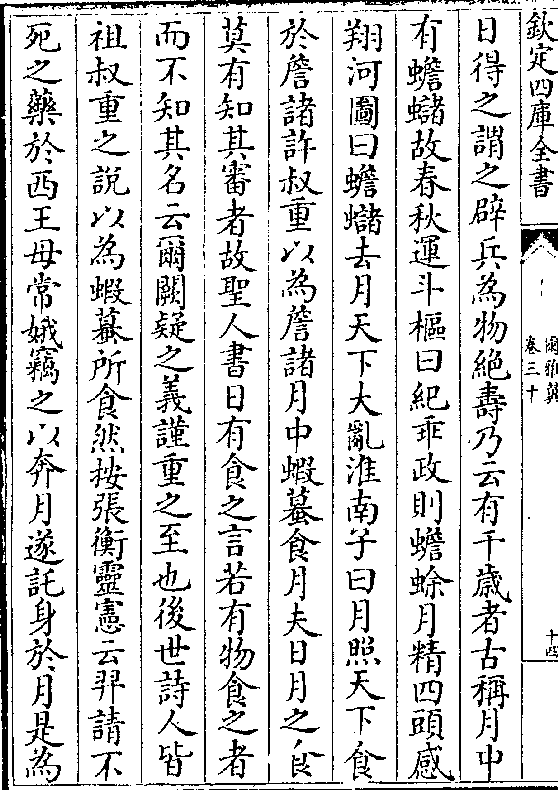 欽定四庫全書
爾雅翼
卷三十
十四
日得之謂之辟兵為物絶壽乃云有千歳者古稱月中
有蟾蠩故春秋運斗樞曰紀乖政則蟾蜍月精四頭感
翔河圖曰蟾蠩去月天下大亂淮南子曰月照天下食
於詹諸許叔重以為詹諸月中蝦蟇食月夫日月之食
莫有知其審者故聖人書日有食之言若有物食之者
而不知其名云爾闕疑之義謹重之至也後世詩人皆
祖叔重之説以為蝦蟇所食然按張衡靈憲云羿請不
死之藥於西王母常娥竊之以奔月遂託身於月是為